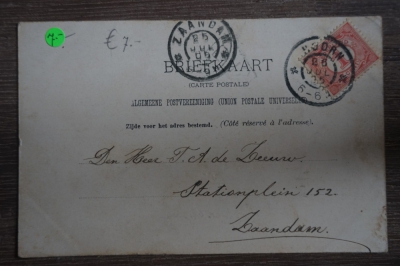 7.-
€ 7.-
ZAANDAM
BRIEFKAART
(CARTE POSTALE)
ALGEMEENE POSTVEREENIGING (UNION POSTALE UNIVERSELLE)
Zijde voor het adres bestemd. (Côté réservé à l'adresse).
Den Heer T. A. de Leeuw.
Stationplein 152.
Zaandam.